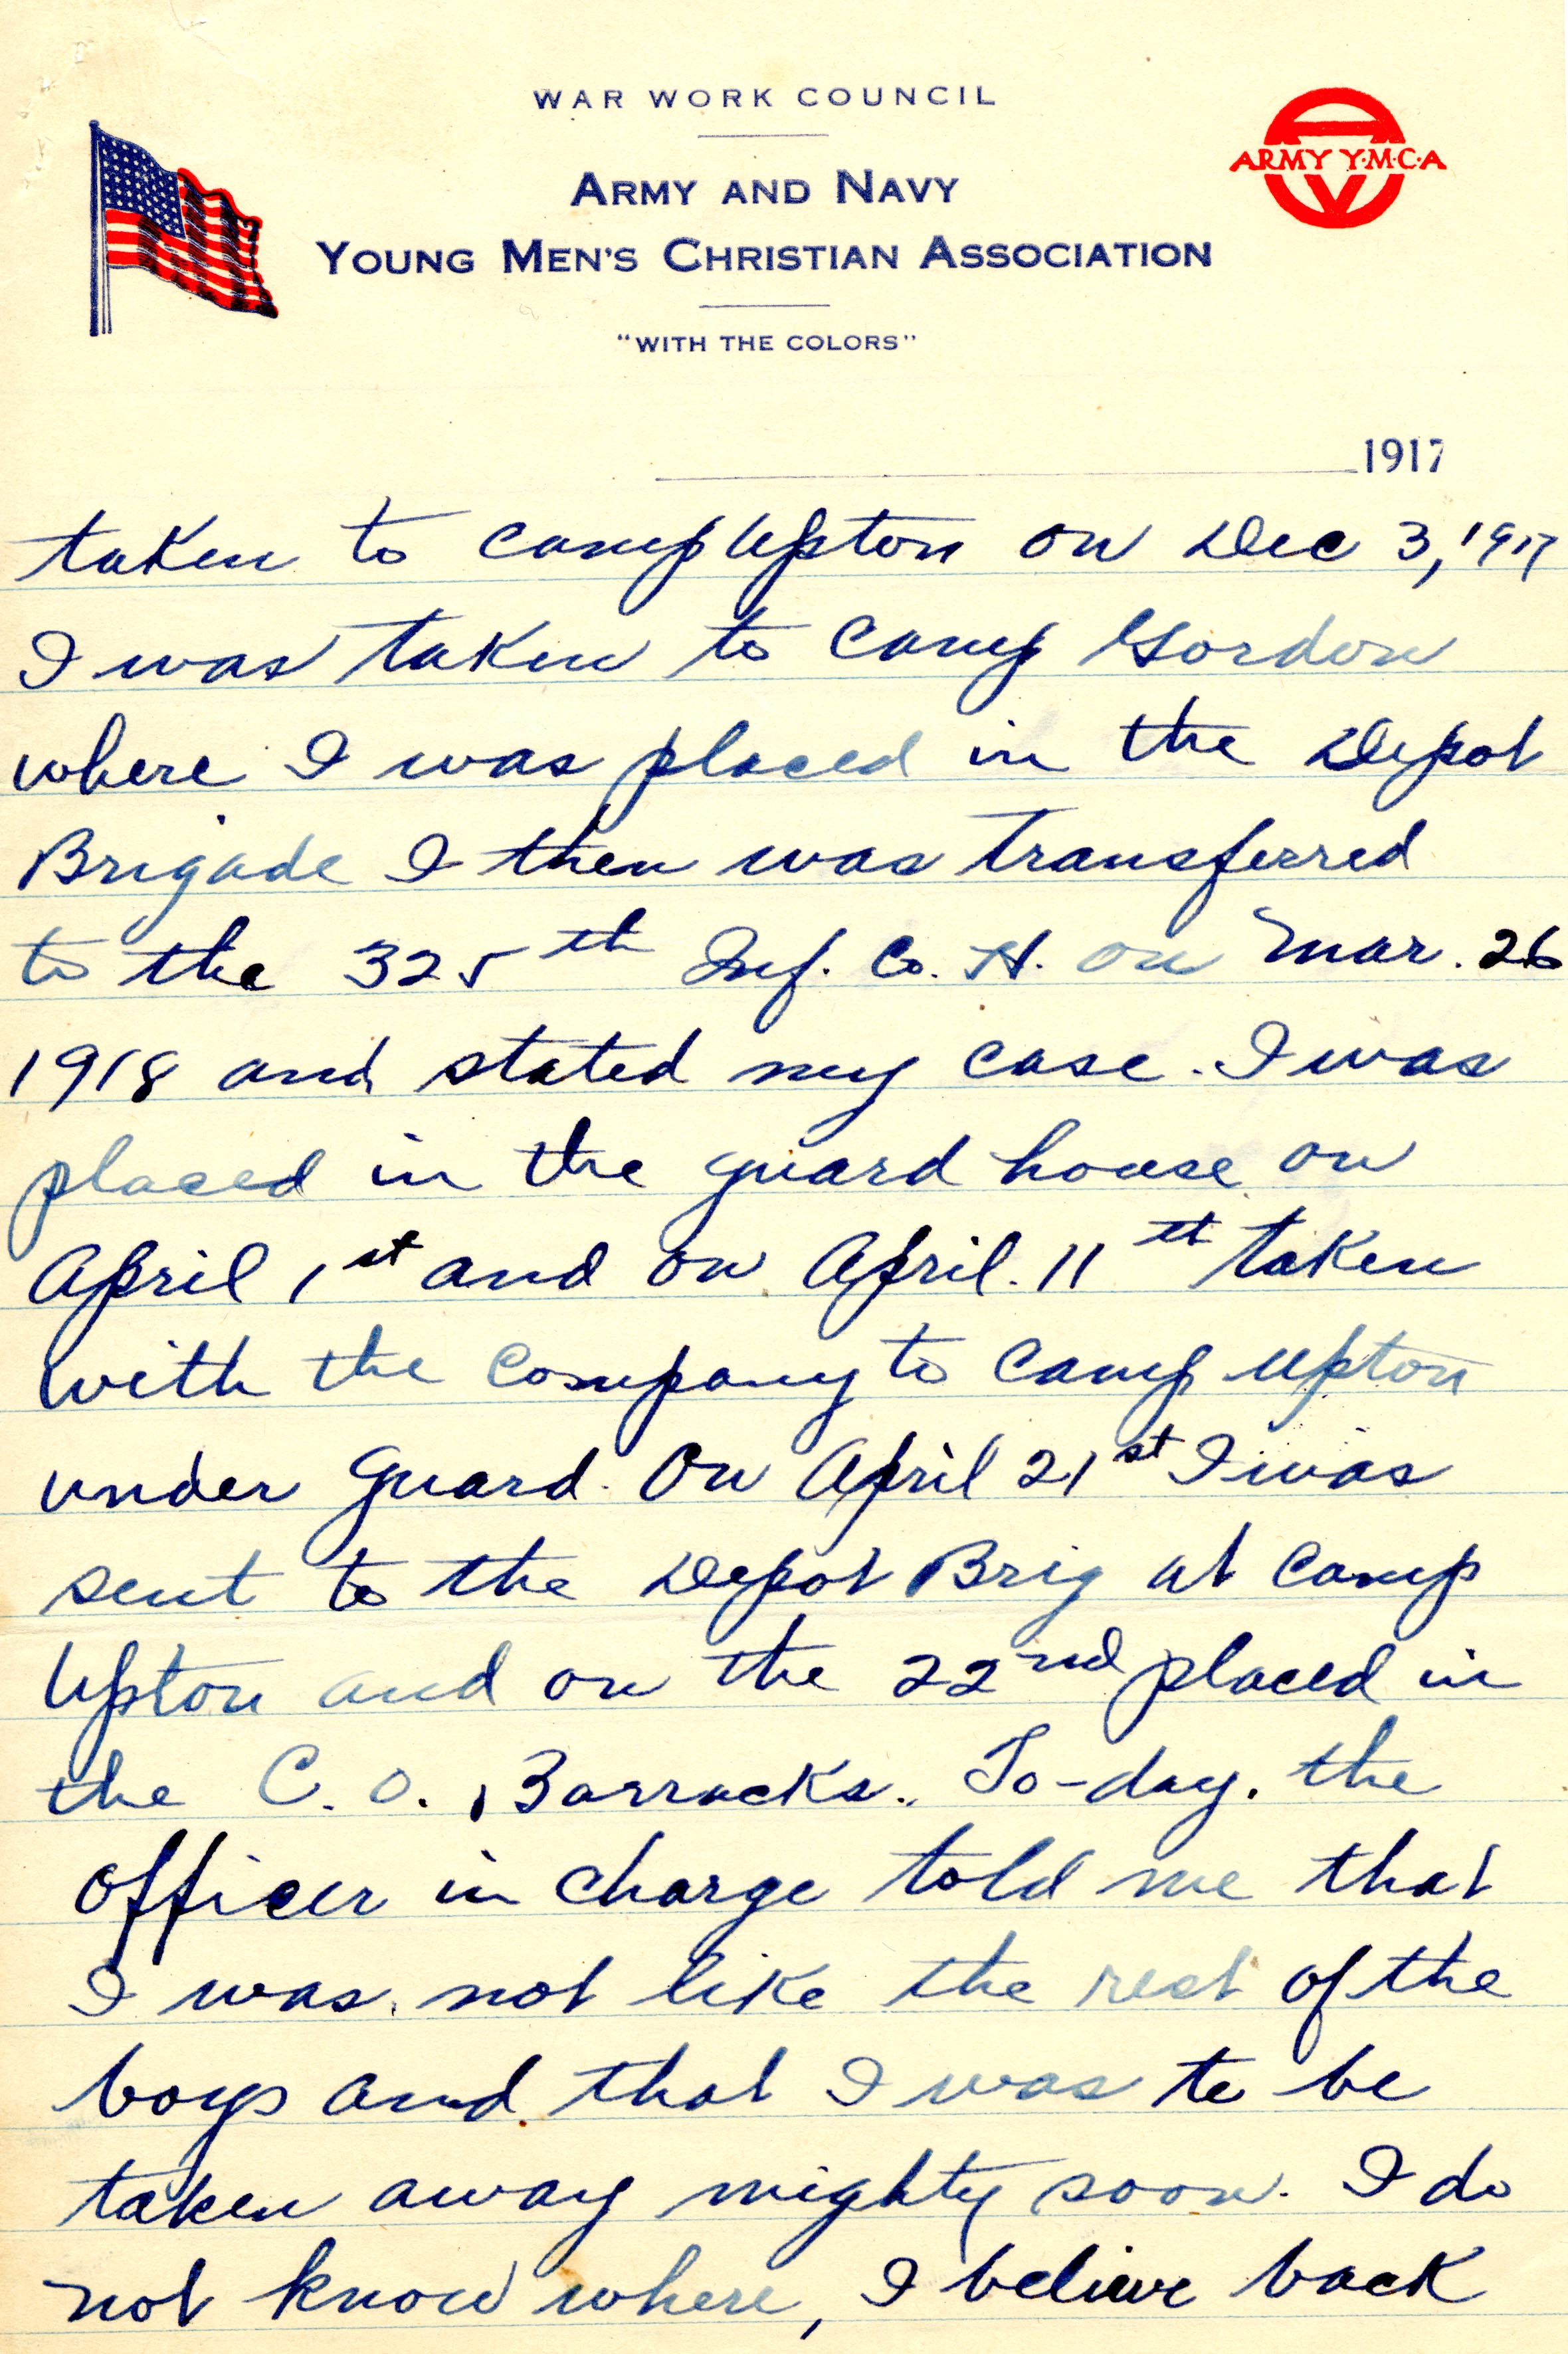 WAR WORK COUNCIL
ARMY AND NAVY
YOUNG MEN'S CHRISTIAN ASSOCIATION
"WITH THE COLORS"
ARMY Y·M·C·A
1917
taken to camp Upton on Dec 3, 1917
I was taken to Camp Gordon
where I was placed in the Depot
Brigade I then was transferred
to the 325th Inf. Co. H. on Mar. 26
1918 and stated my case. I was
placed in the guard house on
April 1st and on April. 11th taken
with the Company to Camp Upton
under Guard. On April 21st I was
sent to the Depot Brig at Camp
Upton and on the 22nd placed in
the C. O. Barracks. To-day. the
officer in charge told me that
I was not like the rest of the
boys and that I was to be
taken away mighty soon. I do
not know where, I believe back